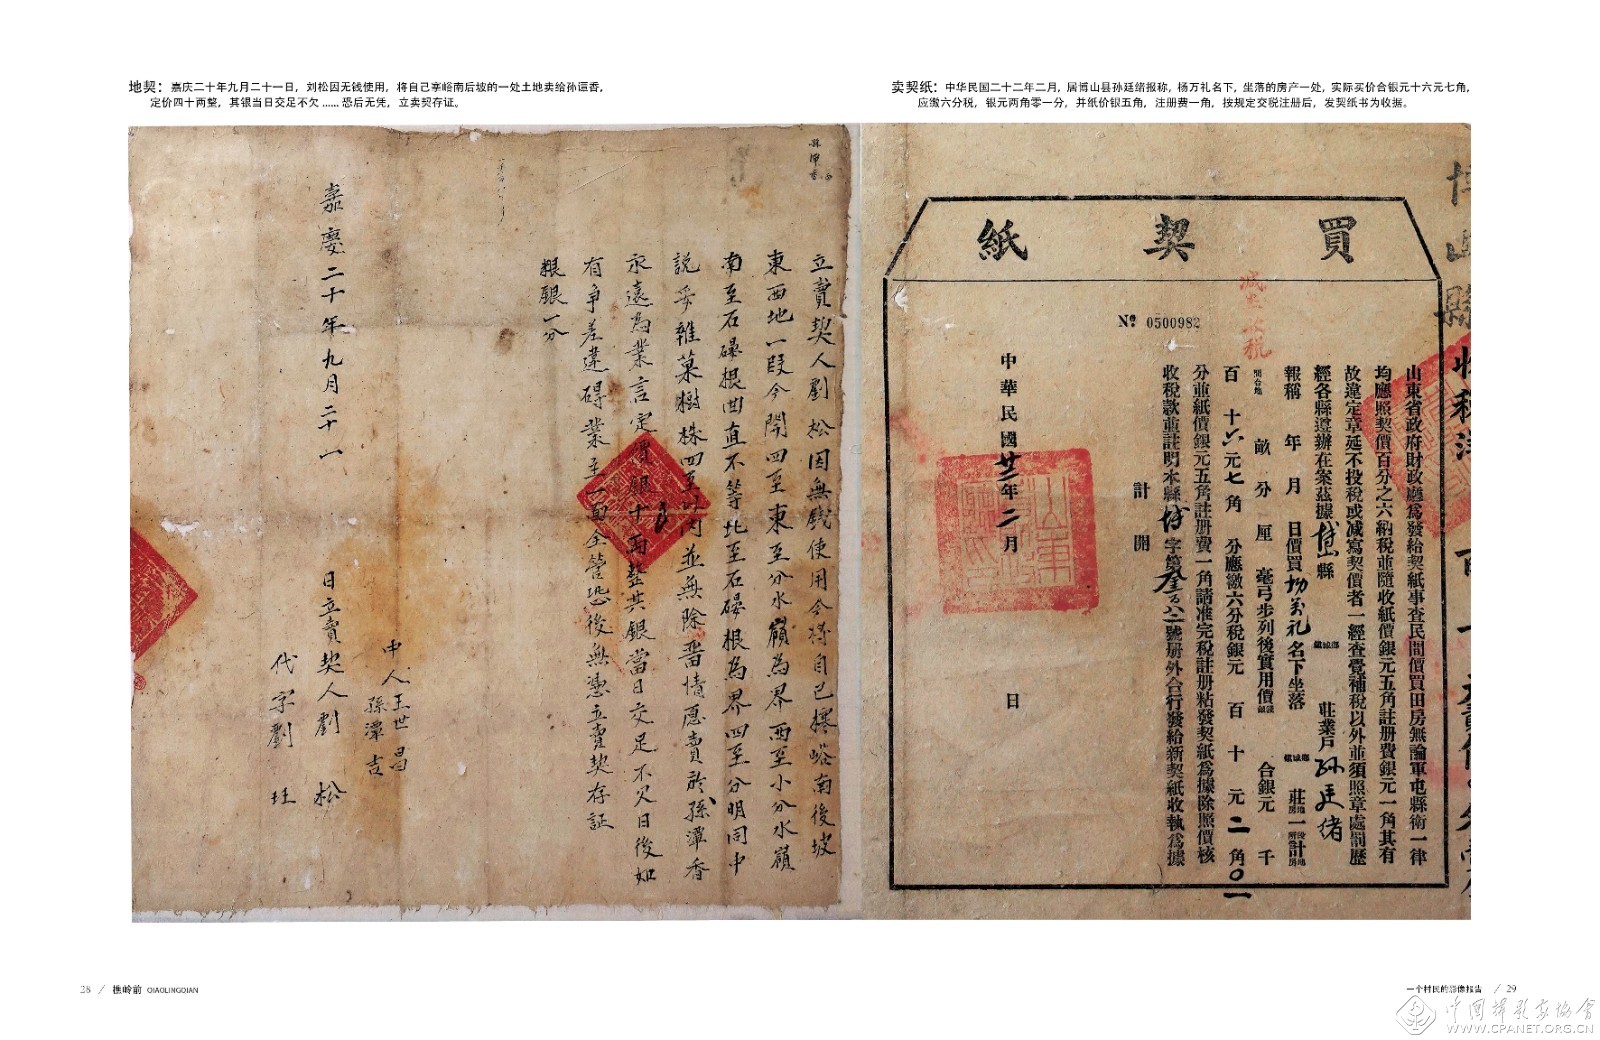 地契：嘉庆二十年九月二十一日，刘松因无钱使用，将自己搴峪南后坡的一处土地卖给孙逗香，
定价四十两整，其银当日交足不欠……恐后无凭，立卖契存证。
卖契纸：中华民国二十二年二月，居博山县孙廷绪报称，杨万礼名下，坐落的房产一处，实际买价合银元十六元七角，
应缴六分税，银元两角零一分，并纸价银五角，注册费一角，按规定交税注册后，发契纸书为收据。
立賣契人劉松因無錢使用今將自己 峪南後坡
東西地一段今開四至東至分水嶺為界西至小分水嶺
南至石磥根曲直不等北至石磥根為界四至分明同中
說妥雜菓樹株四至以内並無除畱情愿賣於孫潭香
永遠為業言定價銀十两整其銀當日交足不欠日後如
有争差違碍業主一面全管恐後無憑立賣契存証
粮銀一分
中人王世昌
孫潭吉
嘉慶二十年九月二十一日立賣契人劉松
代字劉玨
買契紙
№ 0500982
山東省政府財政廳為發給契紙事查民間價買田房無論軍屯縣衛一律
均應照契價百分之六納稅並隨收紙價銀元五角註册費銀元一角其有
故違定章延不投稅或减寫契價者一經查覺補稅以外並須照章處罰歷
經各縣遵辦在案茲據博山縣 莊業戶孫廷绪
報稱 年 月 日價買杨万礼名下坐落 莊 一 計
畝 分 厘 毫弓步列後實用價 合銀元 千
百 十六元七角 分應繳六分稅銀元 百 十 元二角〇一
分並紙價銀元五角註册費一角請准完稅註册粘發契紙為據除照價核
收稅款並註明本縣 字第 號册外合行發給新契紙收執為據
計開
中華民國廿二年二月 日
博山縣
28 / 樵岭前 QIAOLINGQIAN
一个村民的影像报告 / 29
中国摄影家协会
WWW.CPANET.ORG.CN